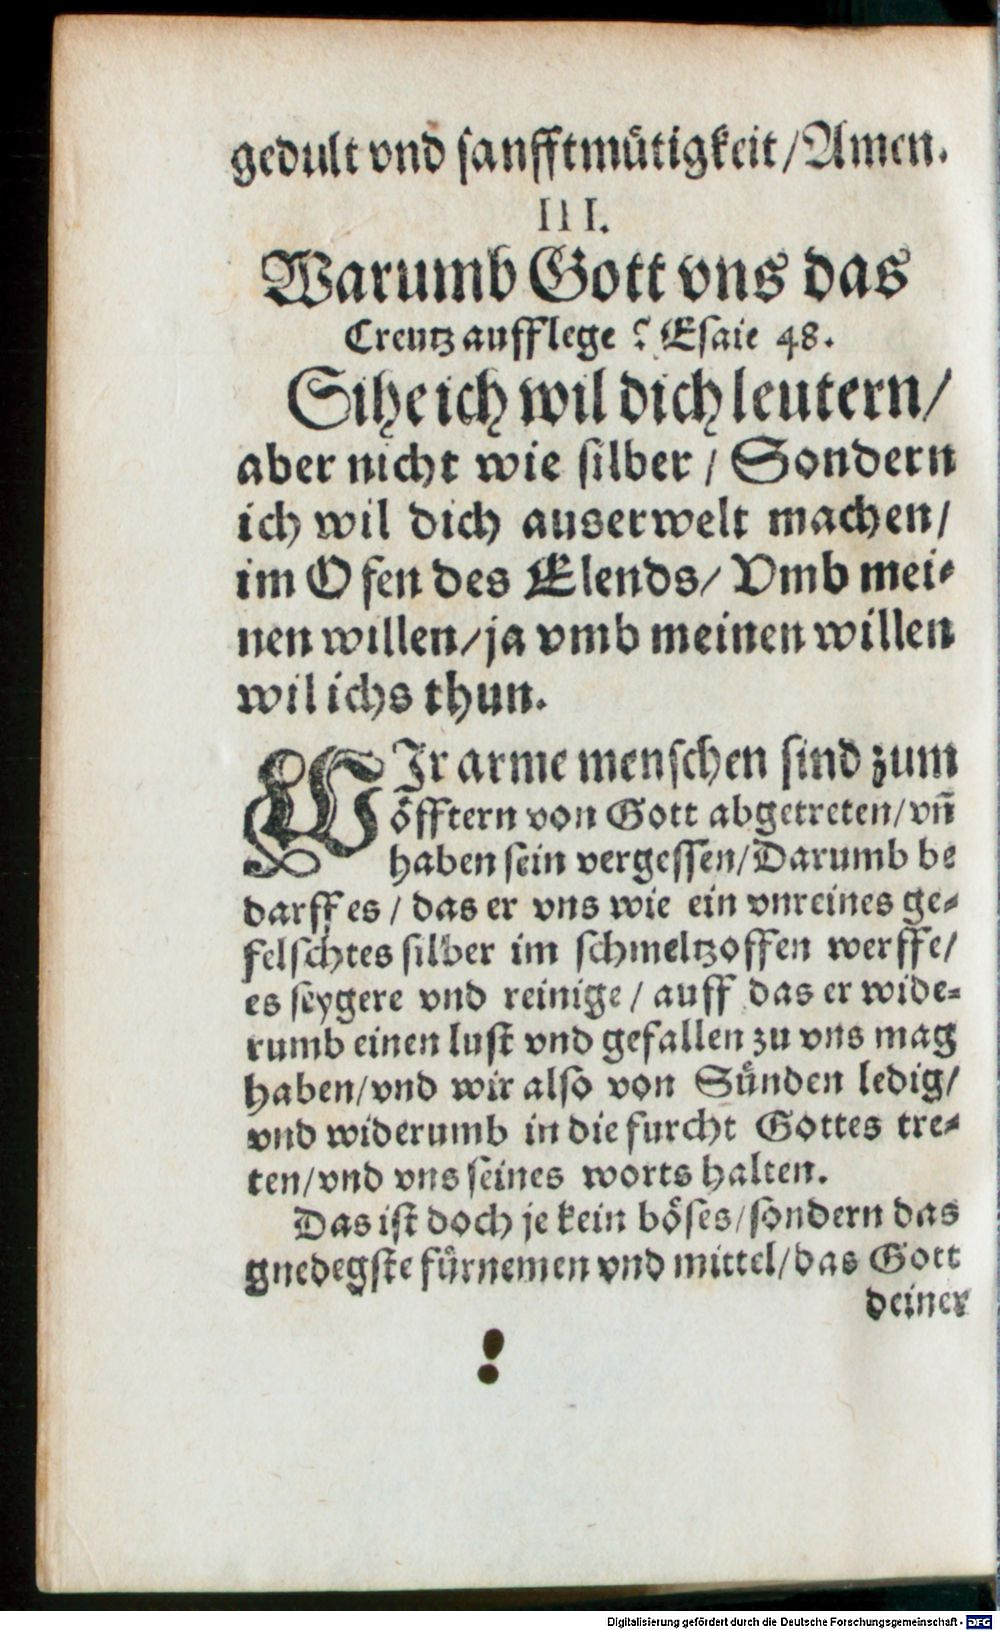 gedult vnd ſanfftmuͤtigkeit/Amen.
III.
Warumb Gott vns das
Creutz aufflege? Eſaie 48.
Sihe ich wil dich leutern/
aber nicht wie ſilber/ Sondern
ich wil dich auserwelt machen/
im Ofen des Elends/ Vmb mei⸗
nen willen/ja vmb meinen willen
wil ichs thun.
WJr arme menſchen ſind zum
oͤfftern von Gott abgetreten/vñ
haben ſein vergeſſen/Darumb be
darff es/ das er vns wie ein vnreines ge⸗
felſchtes ſilber im ſchmeltzoffen werffe/
es ſeygere vnd reinige/ auff das er wide⸗
rumb einen luſt vnd gefallen zu vns mag
haben/vnd wir alſo von Suͤnden ledig/
vnd widerumb in die furcht Gottes tre⸗
ten/vnd vns ſeines worts halten.
Das iſt doch je kein boͤſes/ſondern das
gnedegſte fuͤrnemen vnd mittel/das Gott
deiner
Digitalisierung gefördert durch die Deutsche Forschungsgemeinschaft - DFG